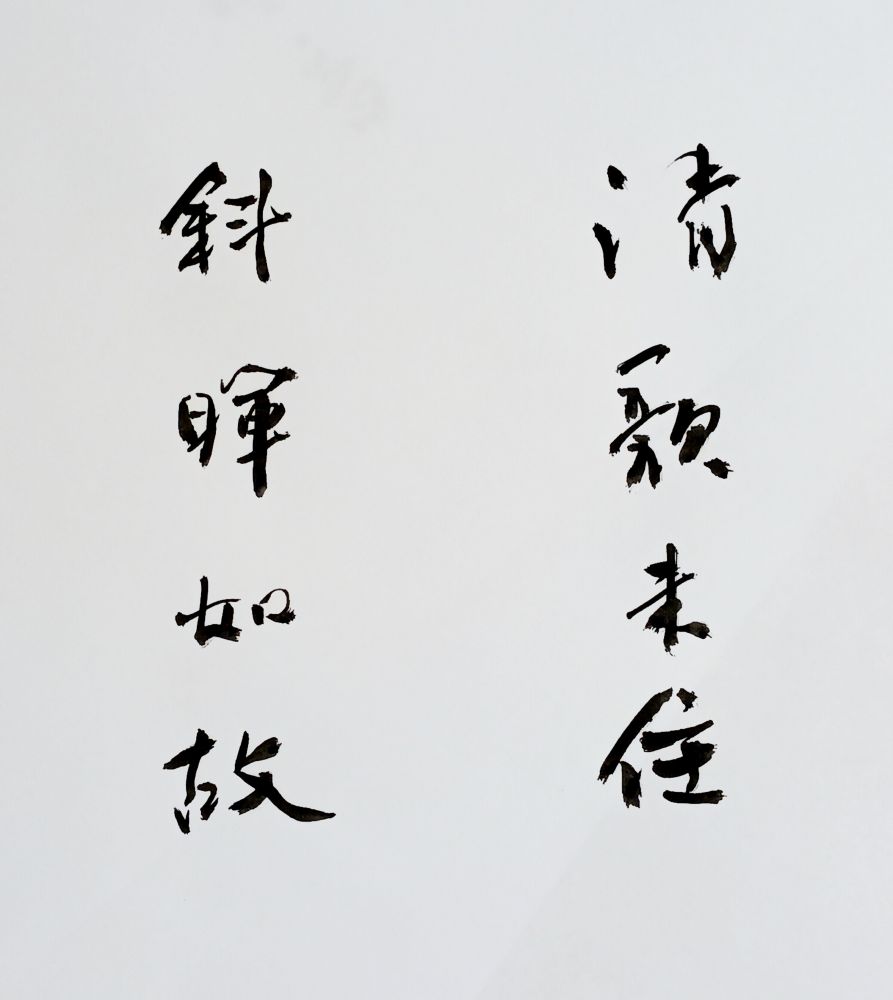 清歌未住
斜暉如故